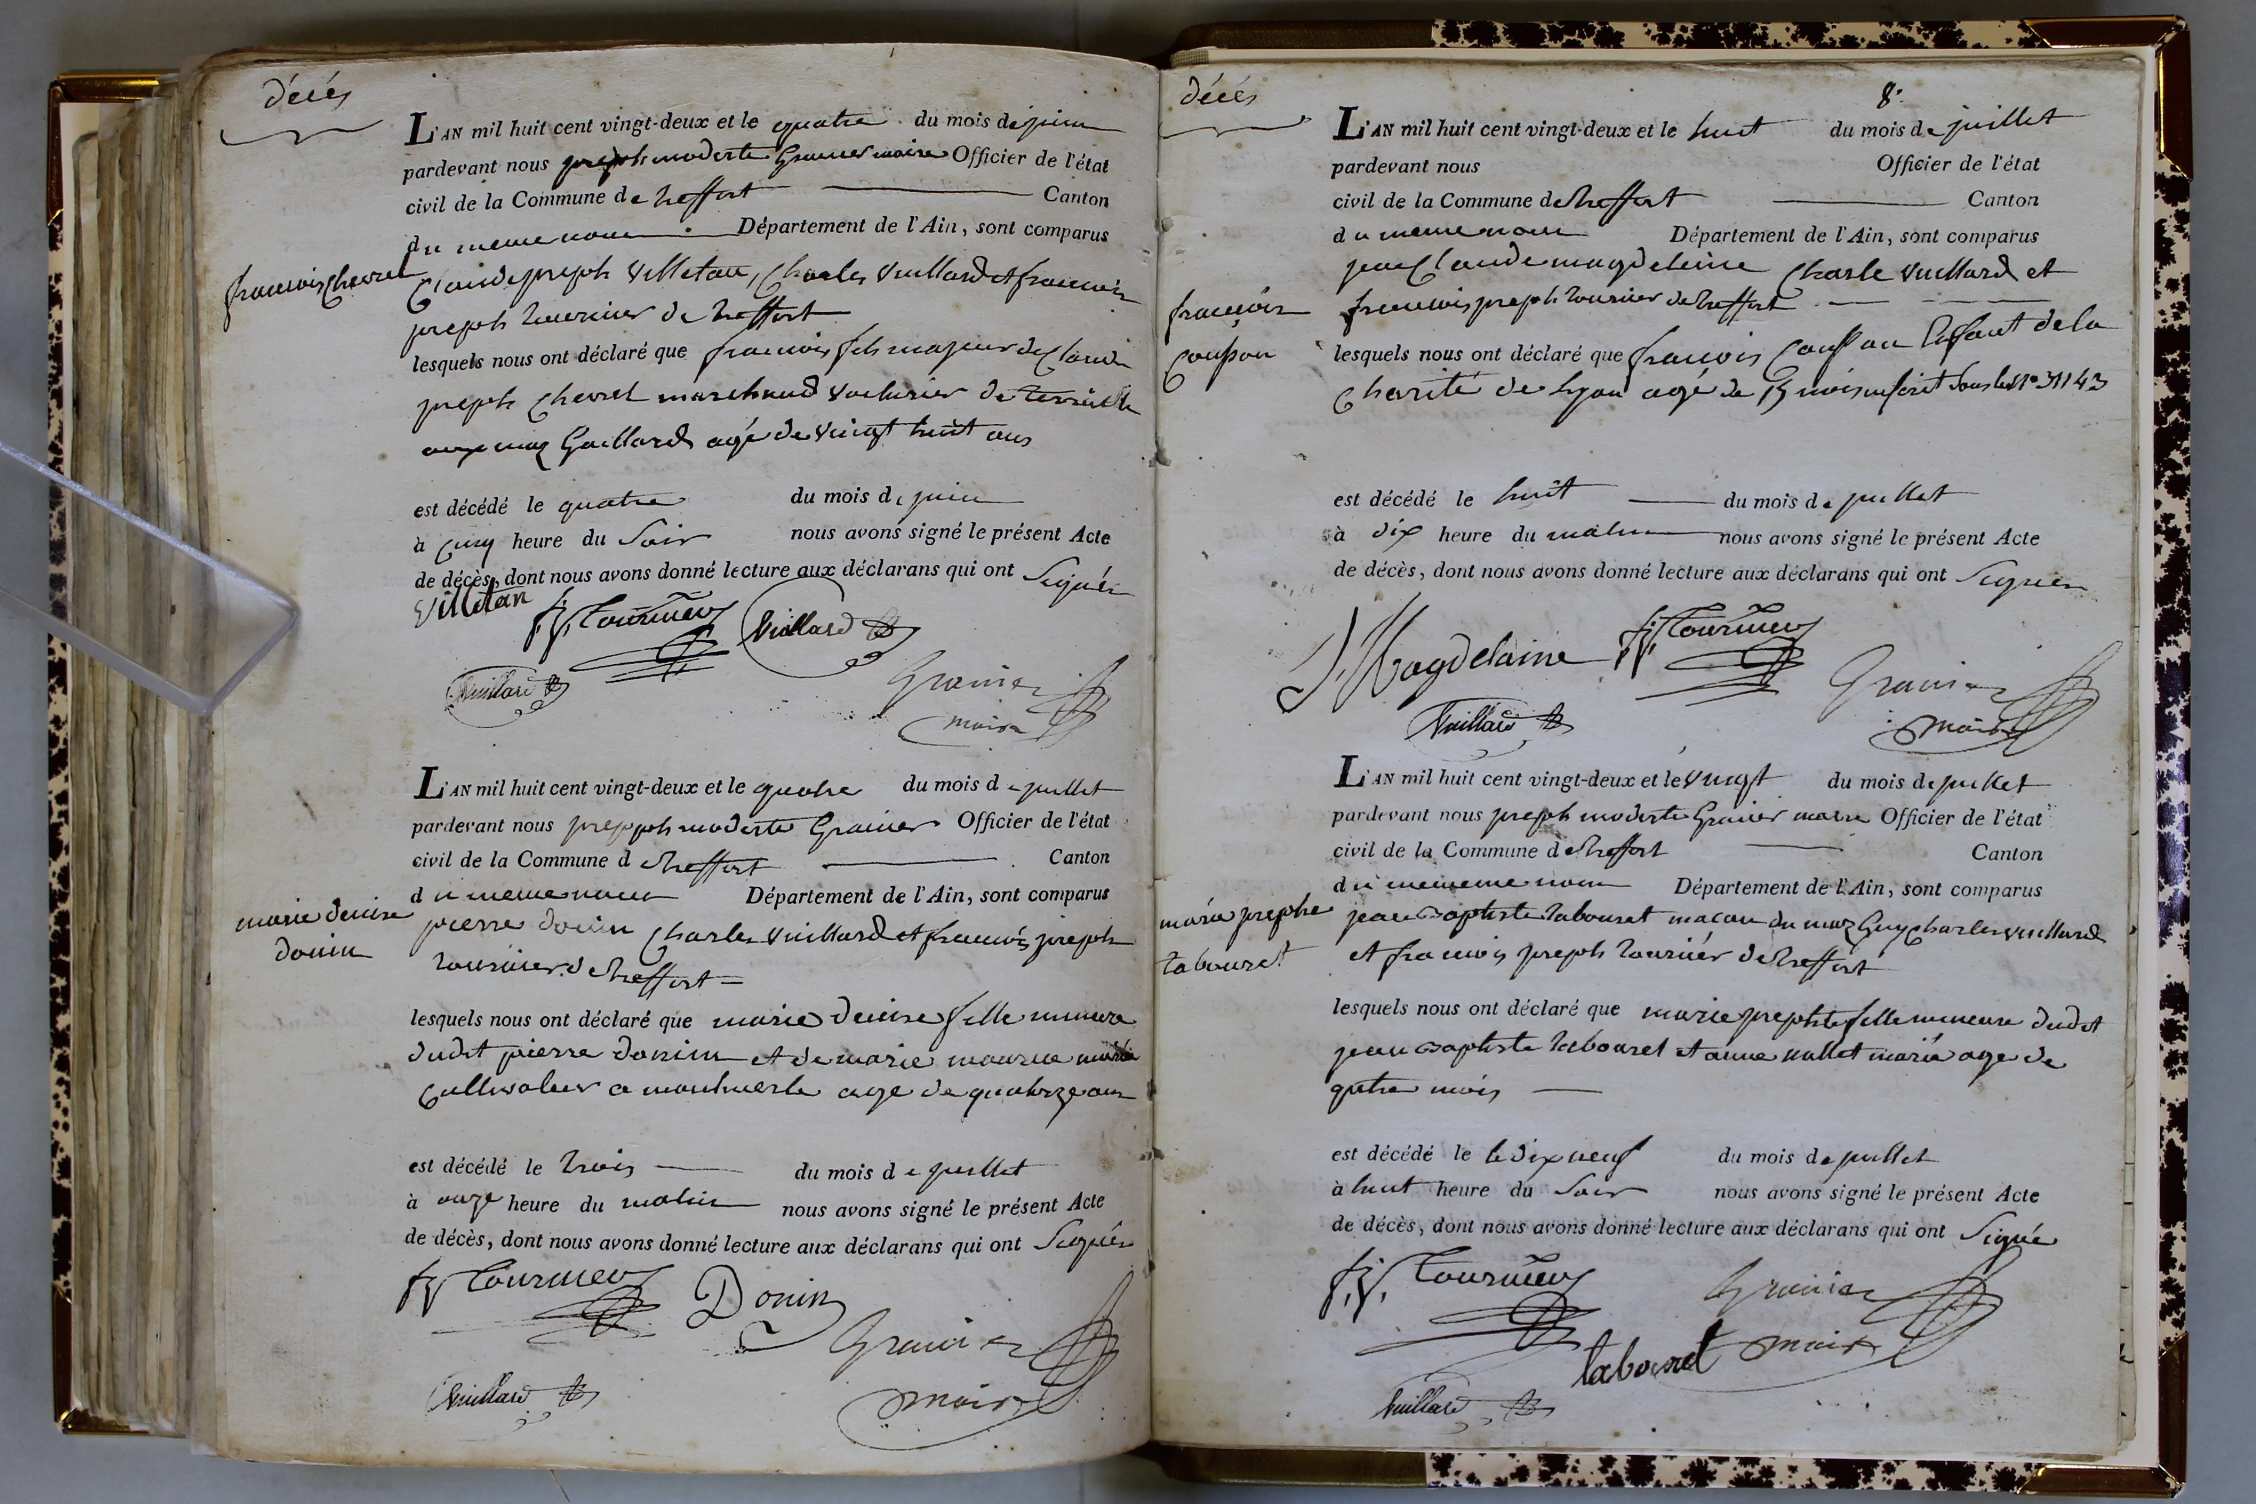 décés
L'AN mil huit cent vingt-deux et le quatre du mois de juin
pardevant nous joseph modeste Granier maire Officier de l'état
civil de la Commune de treffort Canton
du meme nom Département de l'Ain, sont comparus
francois Chevrel
Claude joseph Villetan, Charles Vuillard et francois
joseph tournier de treffort
lesquels nous ont déclaré que francois fils majeur de Claude
joseph Chevrel marchand voiturier de
aux maz Gaillard agé de vingt huit ans
est décédé le quatre du mois de juin
à cinq heure du soir nous avons signé le présent Acte
de décès, dont nous avons donné lecture aux déclarans qui ont signés
Villetan fj Tournier Vuillard
Vuillard Granier
maire
L'AN mil huit cent vingt-deux et le quatre du mois de juillet
pardevant nous joseph modeste Granier Officier de l'état
civil de la Commune de treffort Canton
du meme nom Département de l'Ain, sont comparus
marie denise
donin
pierre donin Charles Vuillard et francois joseph
tournier de treffort
lesquels nous ont déclaré que marie denise fille mineure
dudit pierre donin et de marie maurice mariés
Cultivateur a montmerle age de quatorze ans
est décédé le trois du mois de juillet
à onze heure du matin nous avons signé le présent Acte
de décès, dont nous avons donné lecture aux déclarans qui ont signés
fj Tournier Donin
Granier
Vuillard maire
8.
décés
L'AN mil huit cent vingt-deux et le huit du mois de juillet
pardevant nous Officier de l'état
civil de la Commune de treffort Canton
du meme nom Département de l'Ain, sont comparus
jean Claude magdeleine Charle Vuillard et
francois joseph tournier de treffort
francois
Couson
lesquels nous ont déclaré que francois Couson Enfant de la
Charité de Lyon agé de 15 mois inscrit sous le N° 31143
est décédé le huit du mois de juillet
à dix heure du matin nous avons signé le présent Acte
de décès, dont nous avons donné lecture aux déclarans qui ont signés
J Magdelaine fj Tournier
Granier
Vuillard maire
L'AN mil huit cent vingt-deux et le vingt du mois de juillet
pardevant nous joseph modeste Granier maire Officier de l'état
civil de la Commune de treffort Canton
du mememe nom Département de l'Ain, sont comparus
marie josephe
tabouret
jean Baptiste tabouret macon du maz Guy Charles Vuillard
et francois joseph tournier de treffort
lesquels nous ont déclaré que marie josephte fille mineure dudit
jean Baptiste tabouret et anne nallet mariés age de
qutre mois
est décédé le le dix neuf du mois de juillet
à huit heure du soir nous avons signé le présent Acte
de décès, dont nous avons donné lecture aux déclarans qui ont signé
f,j, Tournier Granier
tabouret maire
Vuillard